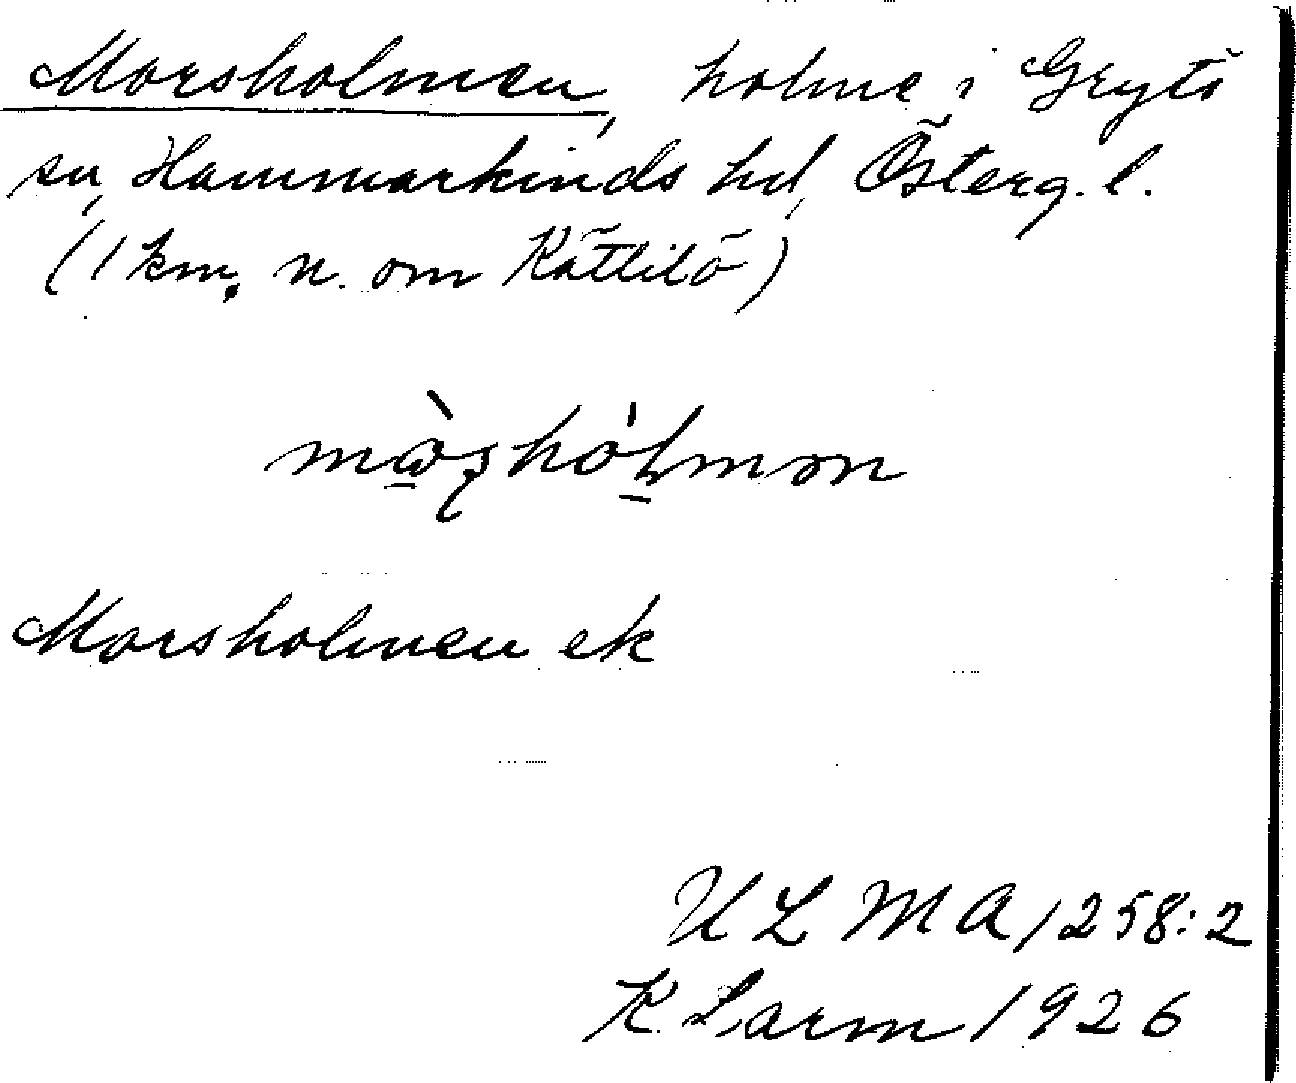 Morsholmen, holme i Gryts
sn, Hammarkinds hd, Österg. l.
(1 km. n. om Kättilö)
Morsholmen ek
ULMA 1258:2
K Larm 1926